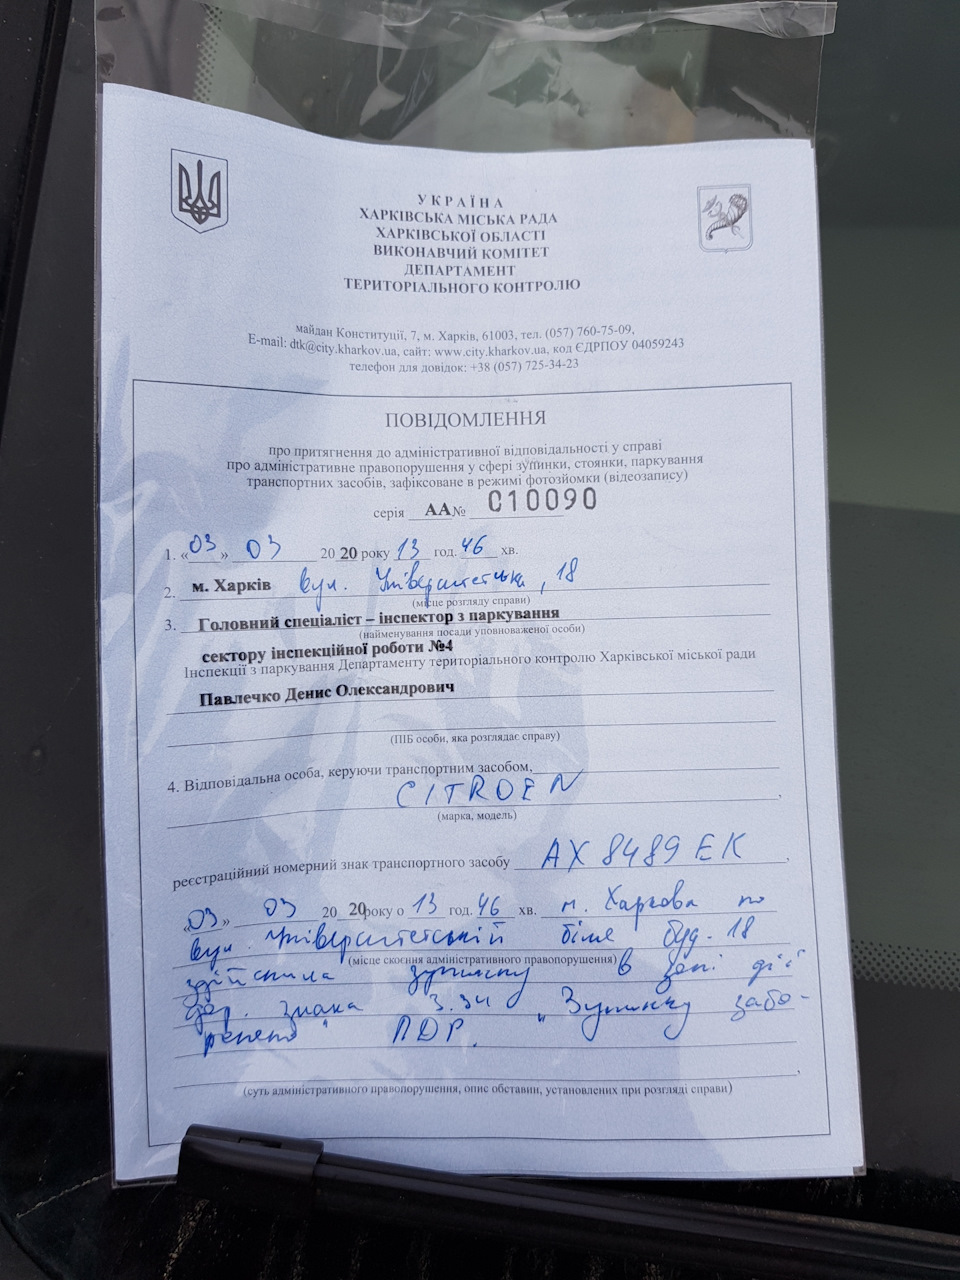 УКРАЇНА
ХАРКІВСЬКА МІСЬКА РАДА
ХАРКІВСЬКОЇ ОБЛАСТІ
ВИКОНАВЧИЙ КОМІТЕТ
ДЕПАРТАМЕНТ
ТЕРИТОРІАЛЬНОГО КОНТРОЛЮ
майдан Конституції, 7, м. Харків, 61003, тел. (057) 760-75-09,
E-mail: dtk@city.kharkov.ua, сайт: www.city.kharkov.ua, код ЄДРПОУ 04059243
телефон для довідок: +38 (057) 725-34-23
ПОВІДОМЛЕННЯ
про притягнення до адміністративної відповідальності у справі
про адміністративне правопорушення у сфері зупинки, стоянки, паркування
транспортних засобів, зафіксоване в режимі фотозйомки (відеозапису)
серія АА № 010090
1. «03» 03 20 20 року 13 год. 46 хв.
2. м. Харків вул. Університетська, 18
(місце розгляду справи)
3. Головний спеціаліст – інспектор з паркування
(найменування посади уповноваженої особи)
сектору інспекційної роботи №4
Інспекції з паркування Департаменту територіального контролю Харківської міської ради
Павлечко Денис Олександрович
(ПІБ особи, яка розглядає справу)
4. Відповідальна особа, керуючи транспортним засобом,
CITROEN,
(марка, модель)
реєстраційний номерний знак транспортного засобу АХ 8489 ЕК,
«03» 03 20 20 року о 13 год. 46 хв. м. Харкова по
вул. Університетській біля буд. 18
(місце скоєння адміністративного правопорушення)
здійснила зупинку в зоні дії
дор. знака 3.34 "Зупинку забо-
ронено" ПДР.
(суть адміністративного правопорушення, опис обставин, установлених при розгляді справи)